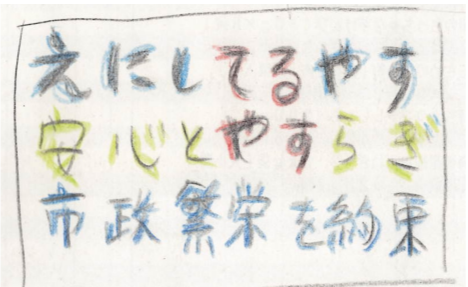 えにしてるやす
安心とやすらぎ
市政繁栄を約束